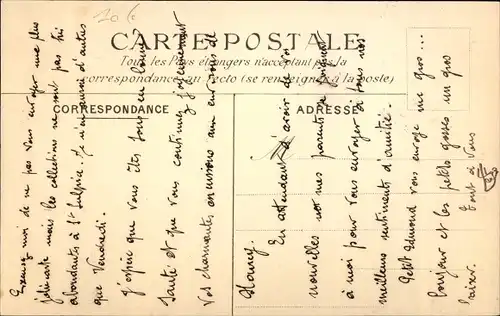 20 c
CARTE POSTALE
Tous les Pays étrangers n'acceptent pas la
correspondance au recto (se renseigner à la poste)
CORRESPONDANCE
ADRESSE
Excusez moi de ne pas vous envoyer une plus
jolie carte mais les collections ne sont pas très
abondantes à St Sulpice. Je n'en aurai d'autres
que Vendredi.
J'espère que vous êtes tous en bonne
santé et que vous continuez joyeusement
vos charmantes excursions aux environs de
En attendant d'avoir de vos
nouvelles mes parents se joignent
à moi pour vous envoyer à tous nos
meilleurs sentiments d'amitié.
Petit Edmond vous envoye un gros...
bonjour et les petits gosses un gros
baiser. Tout à vous